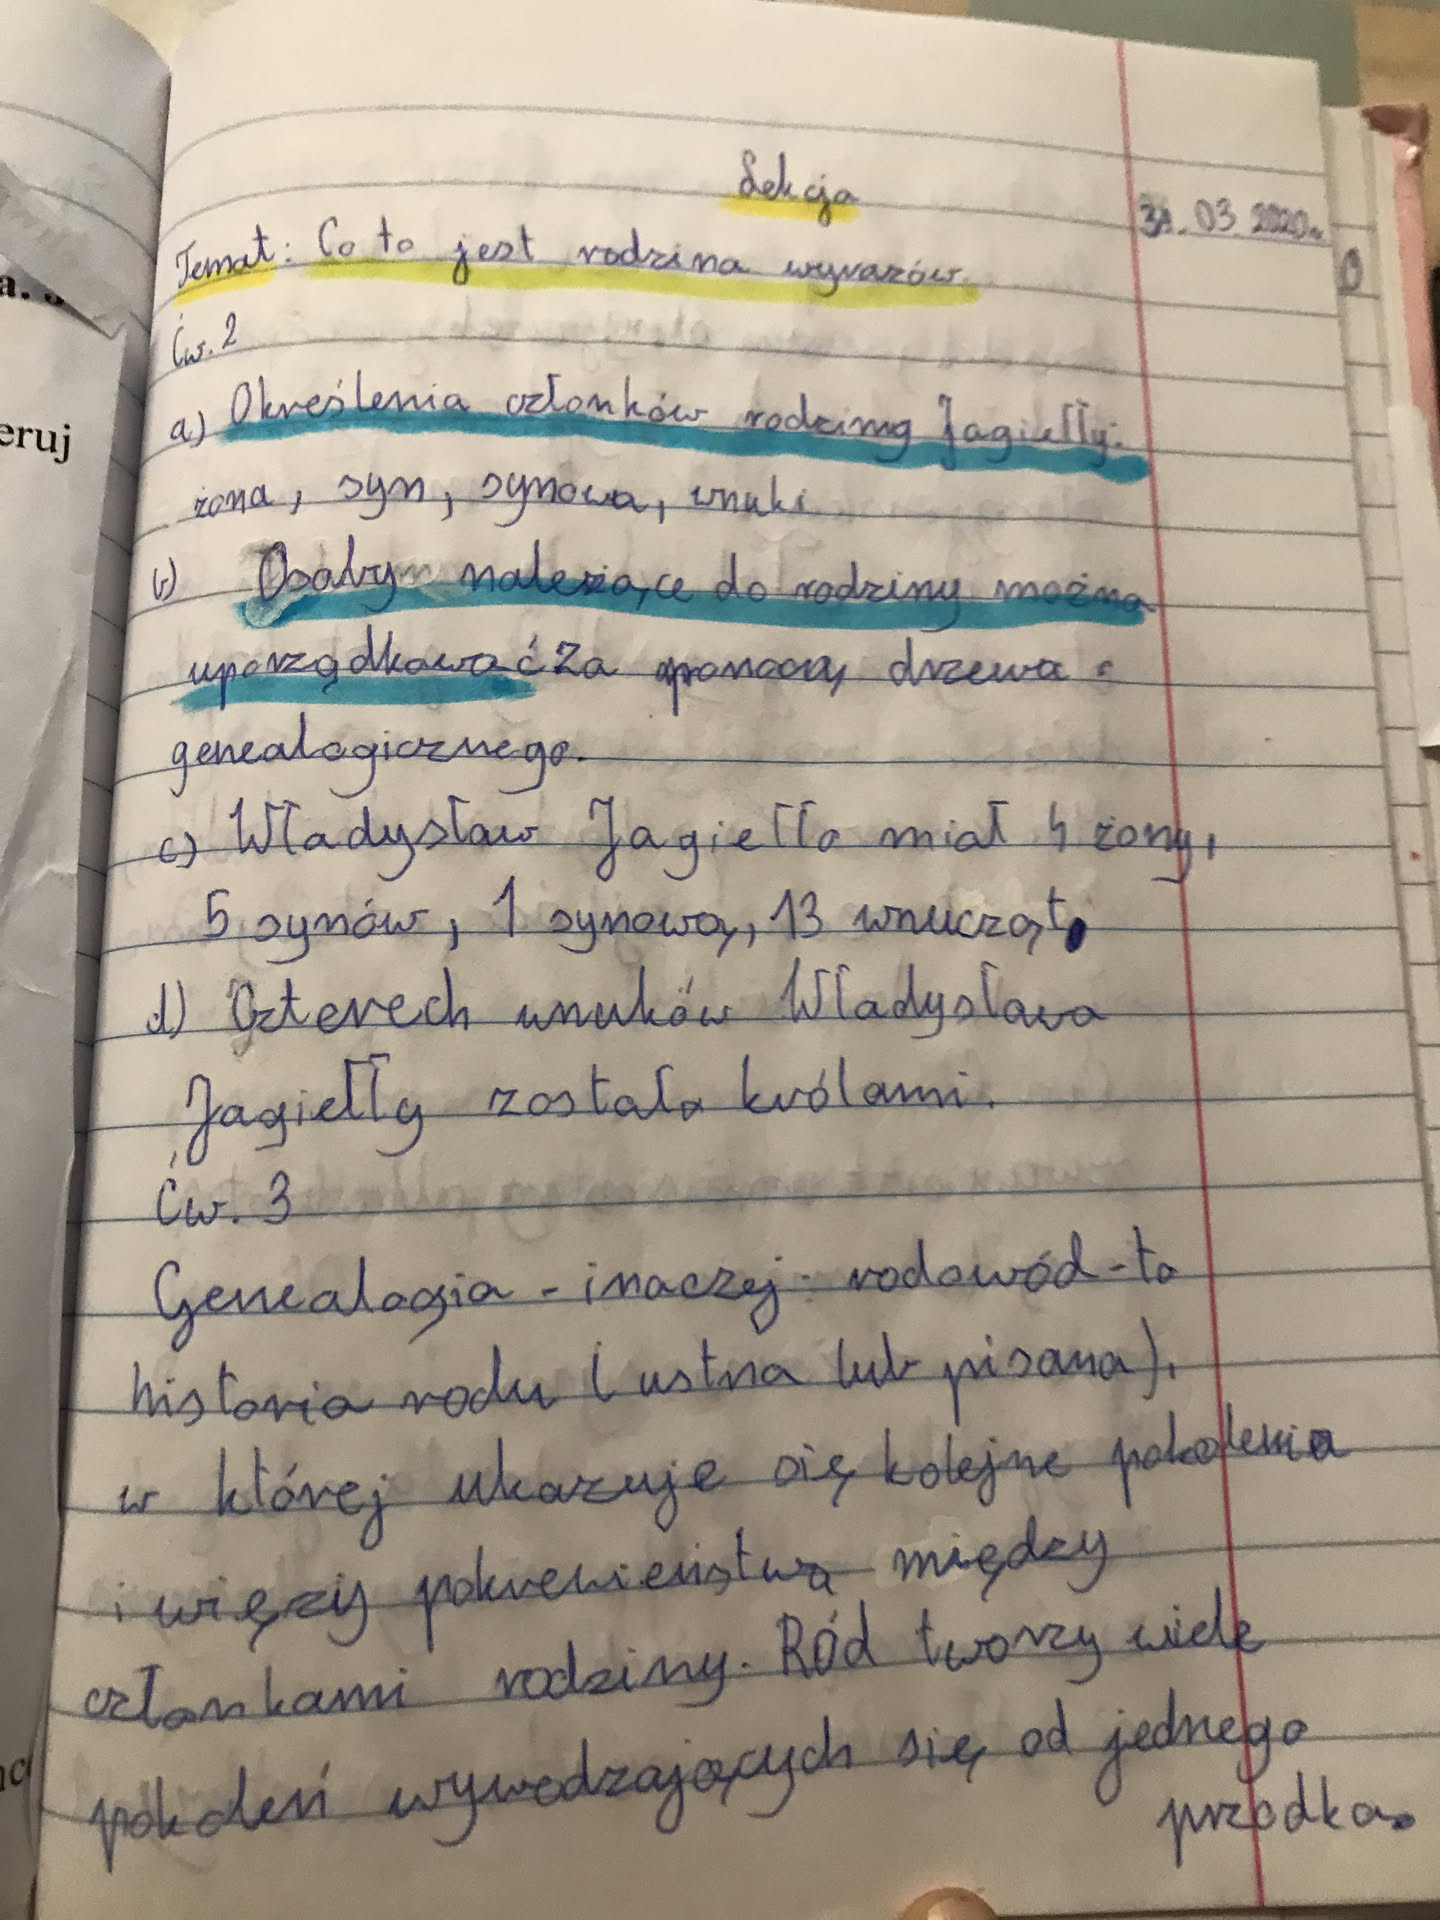 Lekcja
31.03.2020r.
Temat: Co to jest rodzina wyrazów.
Ćw. 2
a) Określenia członków rodziny Jagiełły:
żona, syn, synowa, wnuki
b) Osoby należące do rodziny można
uporządkować za pomocą drzewa
genealogicznego.
c) Władysław Jagiełło miał 4 żony,
5 synów, 1 synową, 13 wnucząt.
d) Czterech wnuków Władysława
Jagiełły została królami.
Ćw. 3
Genealogia - inaczej rodowód - to
historia rodu (ustna lub pisana),
w której ukazuje się kolejne pokolenia
i więzy pokrewieństwa między
członkami rodziny. Ród tworzy wiele
pokoleń wywodzających się od jednego
przodka.
eruj